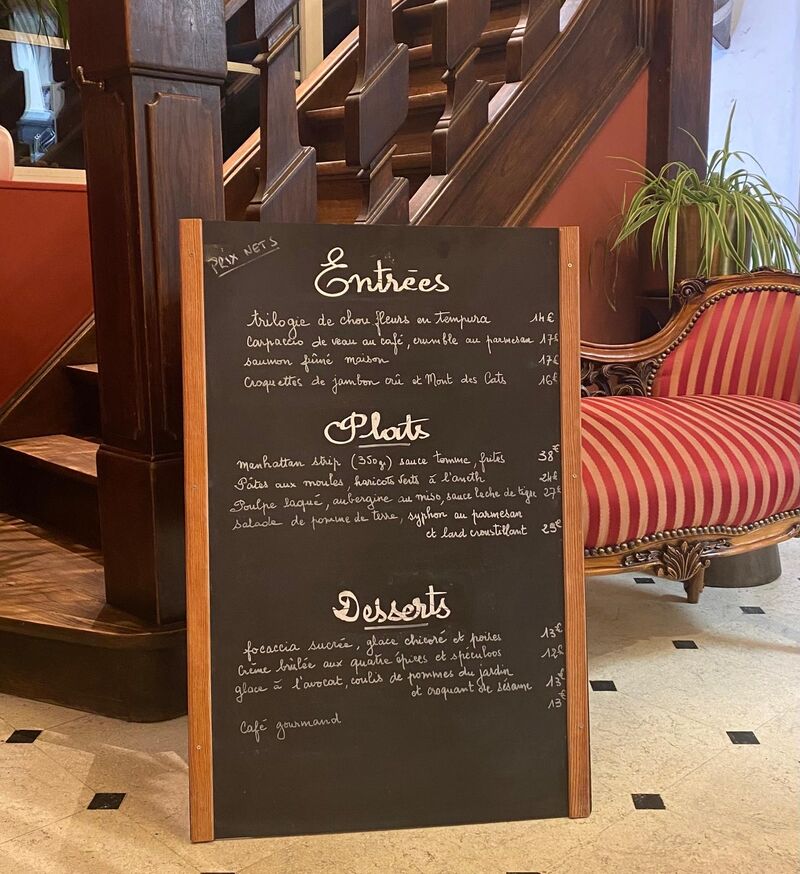 PRIX NETS
Entrées
trilogie de chou fleurs en tempura 14€
Carpaccio de veau au café, crumble au parmesan 17€
saumon fûmé maison 17€
Croquettes de jambon crû et Mont des Cats 16€
Plats
manhattan strip (350g) sauce tomme, frites 38€
Pâtes aux moules, haricots verts à l'aneth 24€
Poulpe laqué, aubergine au miso, sauce leche de tigre 27€
salade de pomme de terre, syphon au parmesan
et lard croustillant 29€
Desserts
focaccia sucrée, glace chicoré et poires 13€
Crème brûlée aux quatre épices et spéculoos 12€
glace à l'avocat, coulis de pommes du jardin
et croquant de sésame 13€
13€
Café gourmand